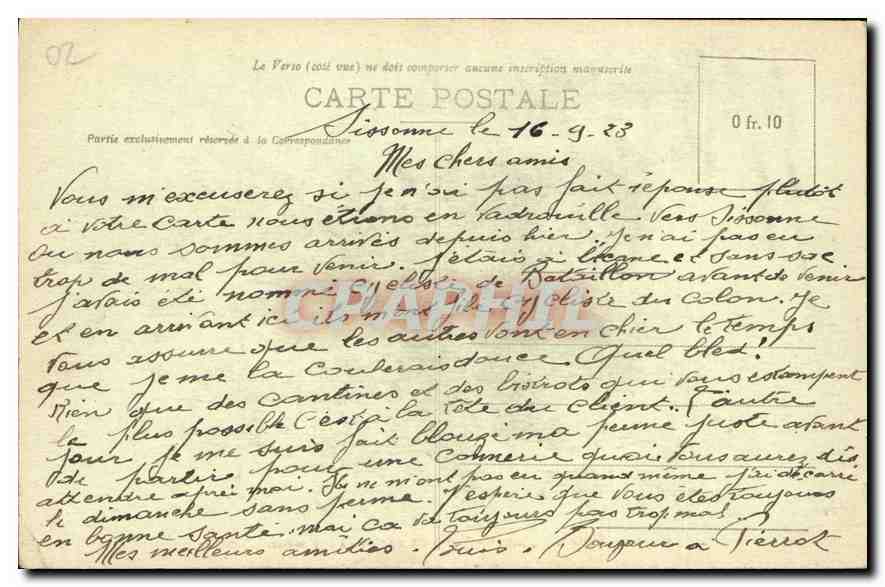 02
Le Verso (coté vue) ne doit comporter aucune inscription manuscrite
CARTE POSTALE
0 fr. 10
Partie exclusivement réservée à la Correspondance
Sissonne le 16-9-23
Mes chers amis
Vous m'excuserez si je n'ai pas fait réponse plutôt
à votre carte nous étions en vadrouille vers Sissonne
ou nous sommes arrivés depuis hier. Je n'ai pas eu
trop de mal pour venir. J'étais à bécane et sans sac
j'avais été nommé cycliste de Bataillon avant de venir
et en arrivant ici ils m'ont mis cycliste du colon. Je
vous assure que les autres vont en chier le temps
que je me la coulerais douce. Quel bled!
Rien que des cantines et des bistrots qui vous estampent
le plus possible c'est à la tête du client. L'autre
jour je me suis fait blouzé ma perme juste avant
de partir pour une connerie quoi. Vous aurez dû
attendre après moi. Ils ne m'ont pas eu quand même j'ai décarré
le dimanche sans perme. J'espère que vous êtes toujours
en bonne santé moi ça va toujours pas trop mal
Mes meilleurs amitiés. Louis. Bonjour à Pierrot
CPAPHIL